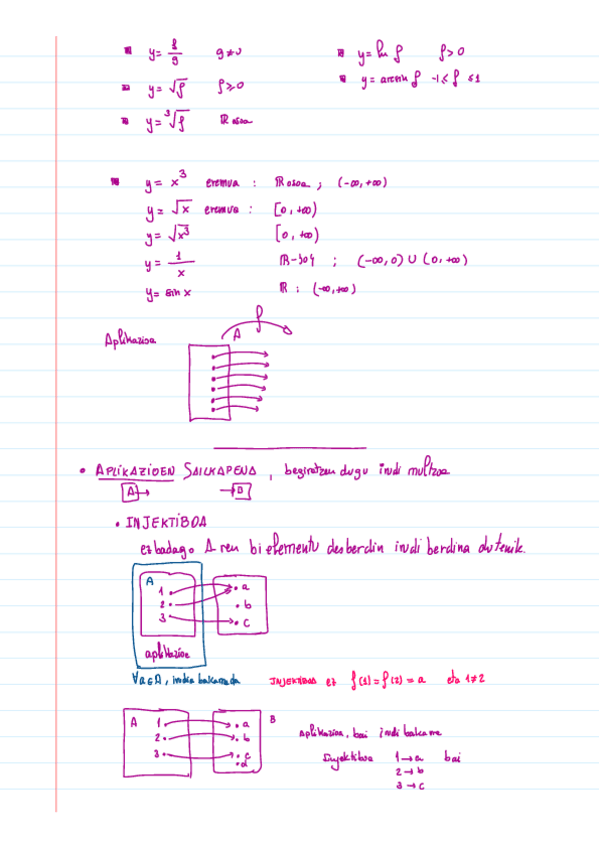 y = f/g g≠0
y = √f f≥0
y = ∛f ℝ osoa
y = ln f f>0
y = arcsin f -1≤f≤1
y = x³ eremua : ℝ osoa ; (-∞,+∞)
y = √x eremua : [0,+∞)
y = √x³ [0,+∞)
y = 1/x ℝ-{0} ; (-∞,0) ∪ (0,+∞)
y = sin x ℝ ; (-∞,+∞)
f
Aplikazioa A
• APLIKAZIOEN SAILKAPENA, begiratzen dugu irudi multzoa
A→ →B
• INJEKTIBOA
ez badago A ren bi elementu desberdin irudi berdina dutenik.
A
1 • • a
2 • • b
3 • • c
aplikazioa
∀a∈A, irudia bakarrada INJEKTIBOA ez f(1)=f(2)=a eta 1≠2
A B
1 • • a
2 • • b
3 • • c
• d
Aplikazioa, bai irudi bakarra
Injektiboa 1→a bai
2→b
3→c